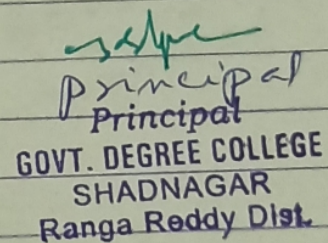 Principal
Principal
GOVT. DEGREE COLLEGE
SHADNAGAR
Ranga Reddy Dist.